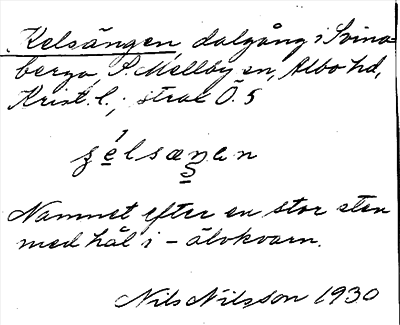 Kelsängen, dalgång i Svina-
berga, S. Mellby sn, Albo hd,
Krist. l.; strax Ö. S
Namnet efter en stor sten
med hål i - älvkvarn.
Nils Nilsson 1930